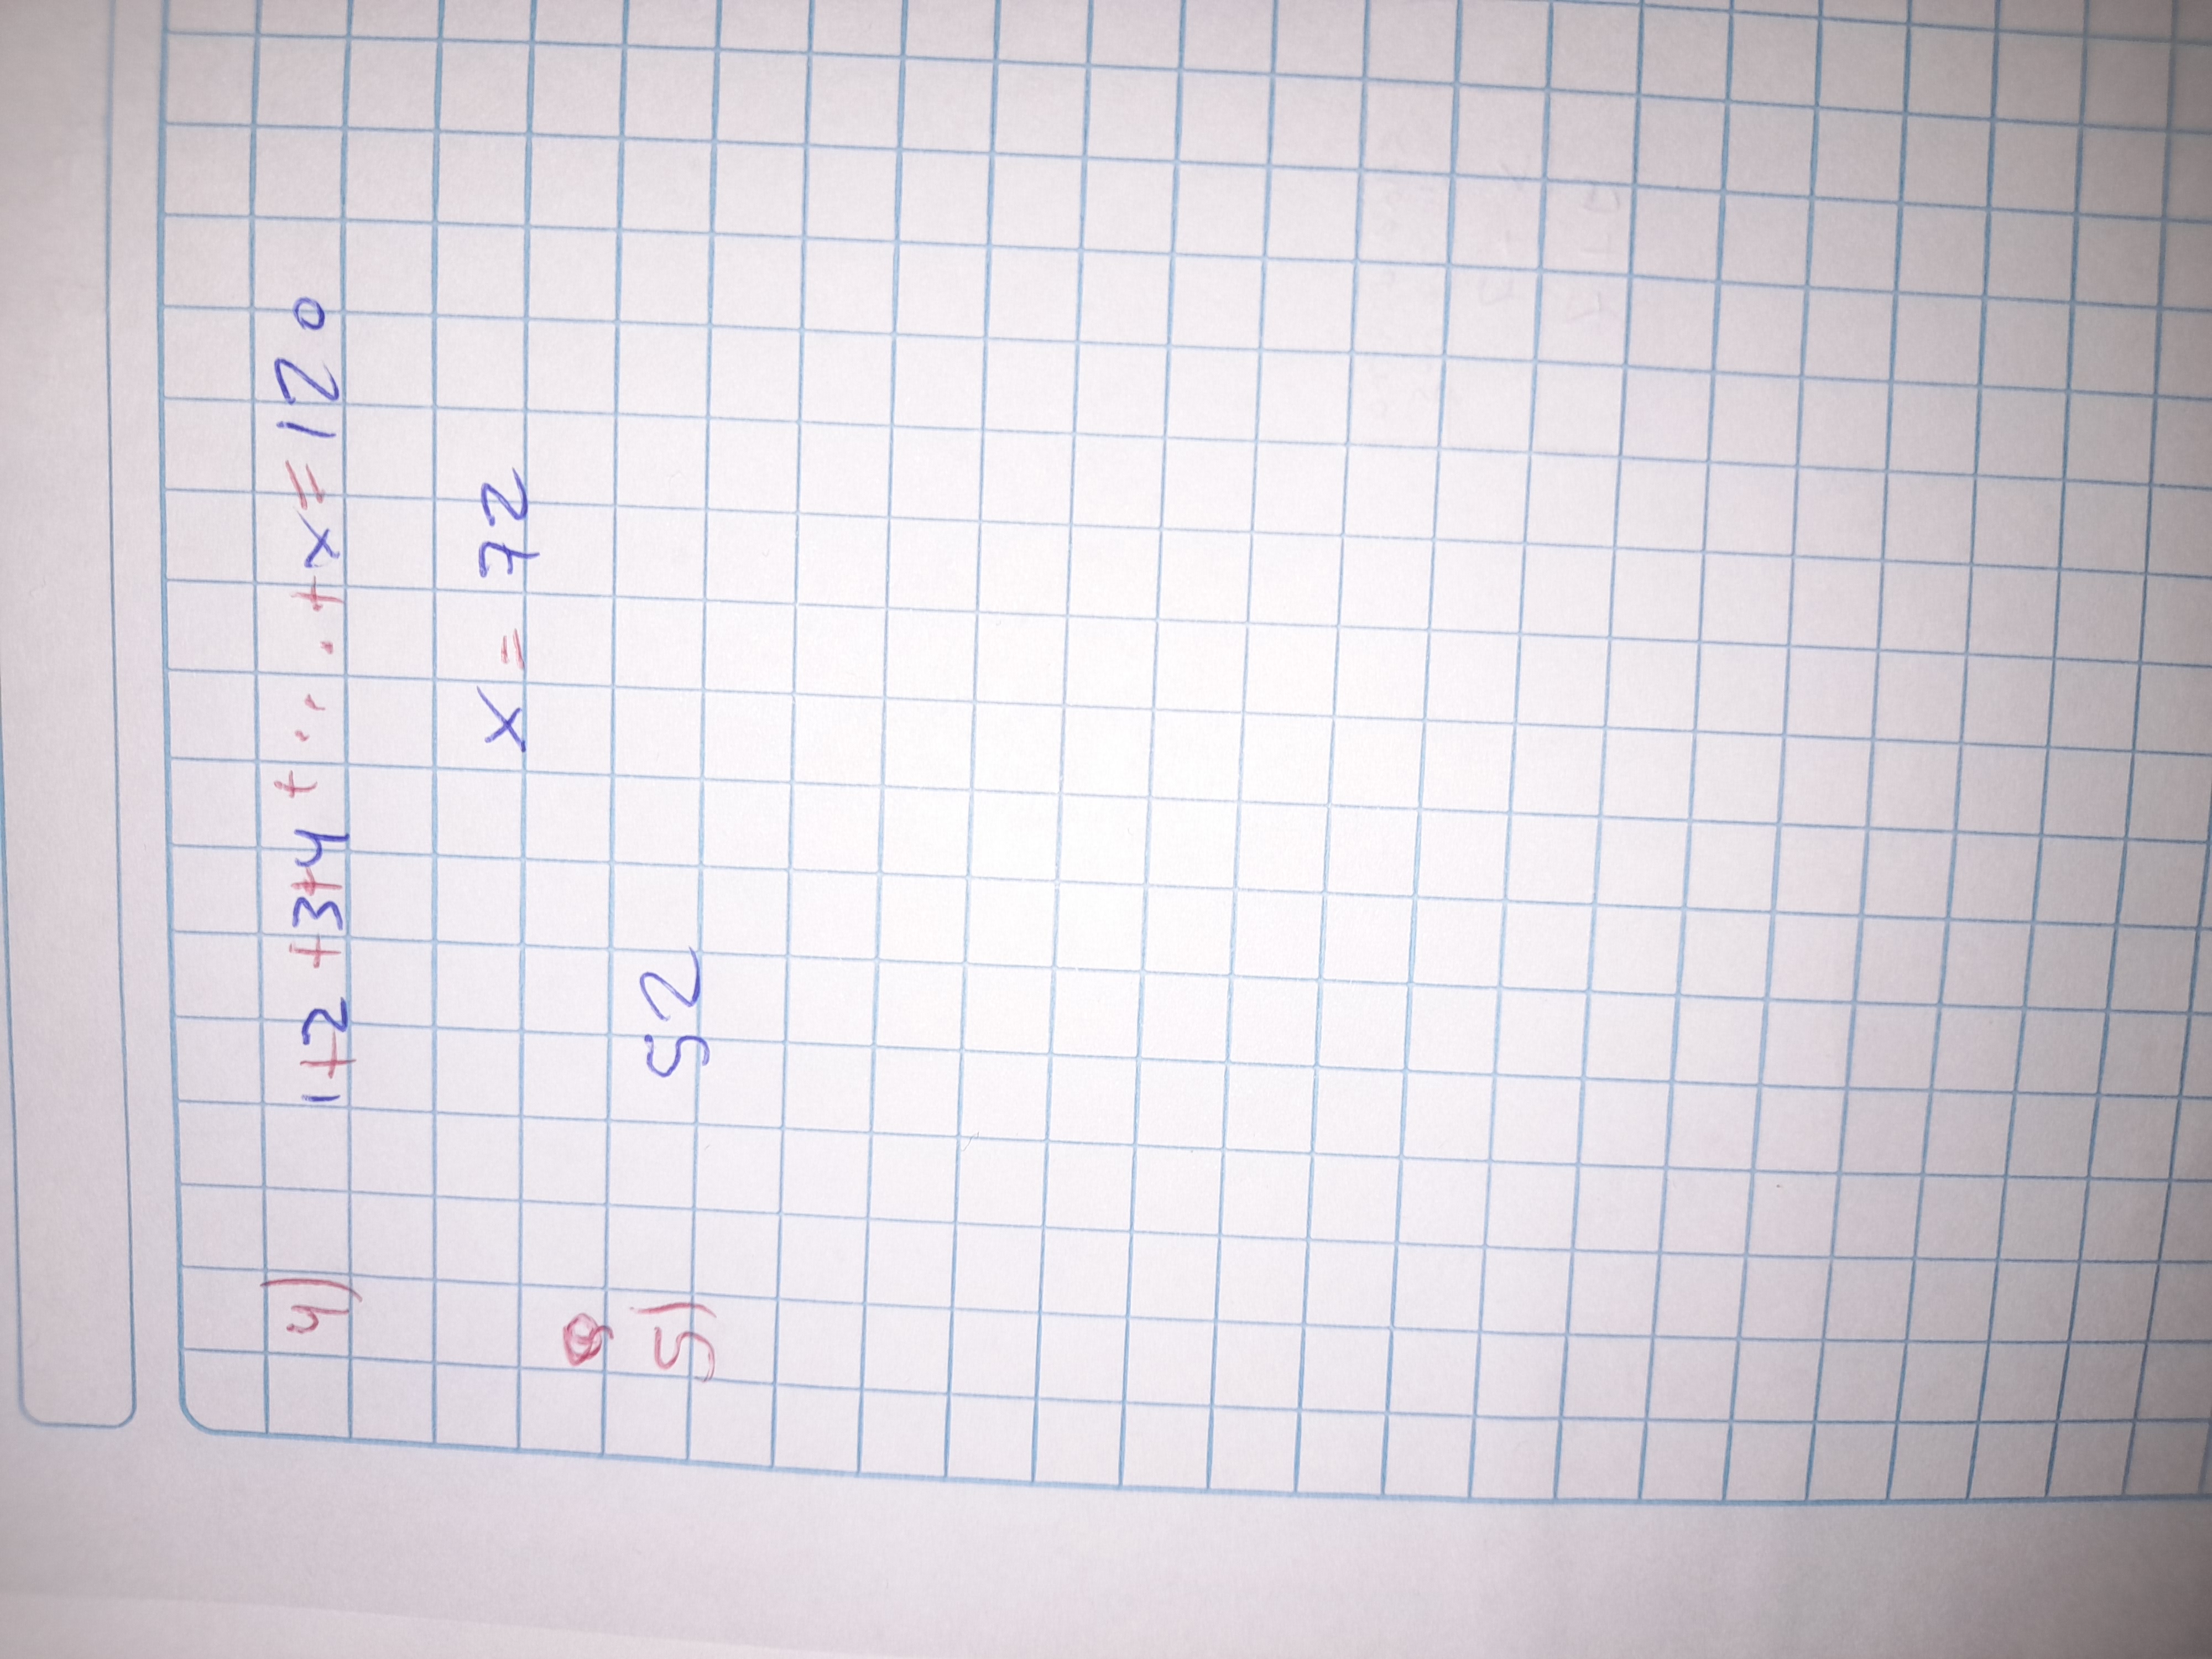 4) 1+2+3+4+...+x=120
x = 72
5) 52